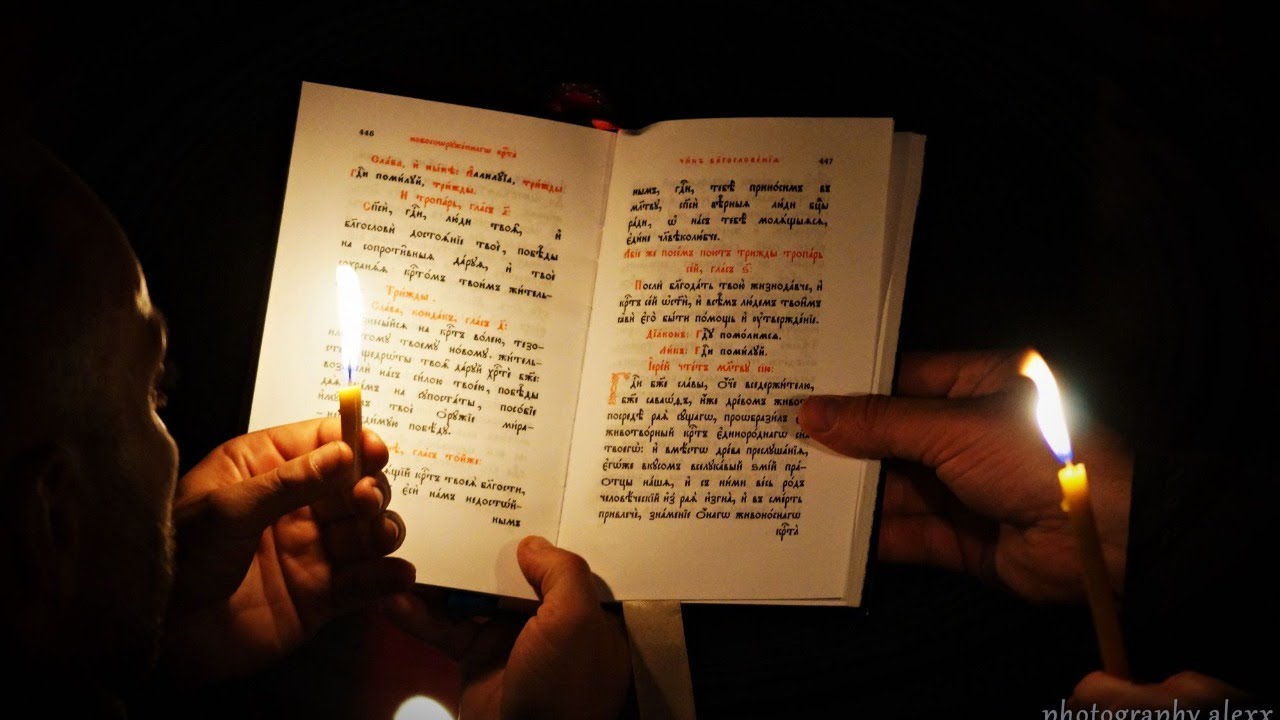 446
новосооруженнагѡ крⷭ҇та̀
Сла́ва, и҆ ны́нѣ: А҆ллилꙋ́їа, три́жды
Гдⷭ҇и поми́лꙋй, три́жды.
И҆ тропа́рь, гла́съ а҃:
Спⷭ҇и́, гдⷭ҇и, лю́ди твоѧ̑, и҆
блгⷭ҇ови́ достоѧ́нїе твоѐ, побѣ̑ды
на сопроти̑вныѧ да́рꙋѧ, и҆ твоѐ
сохранѧ́ѧ крⷭ҇то́мъ твои́мъ жи́тель-
Три́жды.
Сла́ва, конда́къ, гла́съ д҃:
на крⷭ҇тъ во́лею, тезо-
твоемꙋ̀ но́вомꙋ жи́тель-
щедрѡ́ты твоѧ̑ да́рꙋй хрⷭ҇тѐ бж҃е:
на́съ си́лою твое́ю, побѣ̑ды
на́мъ на сꙋпоста́ты, посо́бїе
твоѐ ѻ҆рꙋ́жїе ми́ра-
побѣ́дꙋ.
гла́съ то́йже:
крⷭ҇тъ твоеѧ̀ бла́гости,
є҆сѝ на́мъ недостѡ́й-
нымъ
чи́нъ блгⷭ҇ослове́нїѧ
447
нымъ, гдⷭ҇и, тебѣ̀ прино́симъ въ
мл҃твꙋ, спⷭ҇ѝ вѣ̑рныѧ лю́ди бцⷣы
ра́ди, ѡ҆ на́съ тебѣ̀ молѧ́щыѧсѧ,
є҆ди́не чл҃вѣколю́бче.
А҆́бїе же пое́мъ пою́тъ три́жды тропа́рь
се́й, гла́съ ѕ҃:
Послѝ блгⷣа́ть твою̀ жизнода́вче, и҆
крⷭ҇тъ се́й ѡ҆ст҃ѝ, и҆ всѣ̑мъ лю́демъ твои̑мъ
є҆го̀ бы́ти по́мощь и҆ ᲂу҆твержде́нїе.
Дїа́конъ: Гдⷭ҇ꙋ помо́лимсѧ.
Ли́къ: Гдⷭ҇и поми́лꙋй.
І҆ере́й чте́тъ мл҃твꙋ сїю̀:
Гдⷭ҇и бж҃е сла́вы, ѻ҆́ч҃е вседержи́телю,
бж҃е саваѡ́ѳъ, и҆́же дре́вомъ живо́т
посредѣ̀ раѧ̀ сꙋ́щагѡ, проѡбрази́лъ є҆
животво́рный крⷭ҇тъ є҆диноро́днагѡ сн҃а
твоегѡ̀: и҆ вмѣ́стѡ дре́ва преслꙋша́нїѧ,
є҆гѡ́же вкꙋ́сомъ вселꙋка́вый ѕмі́й пра-
ѻтцы̀ на́шѧ, и҆ съ ни́ми ве́сь ро́дъ
человѣ́ческїй и҆з̾ раѧ̀ и҆згна̀, и҆ въ сме́рть
привлечѐ, зна́менїе ѻ҆́нагѡ живоно́снагѡ
крⷭ҇та̀
photography alexx